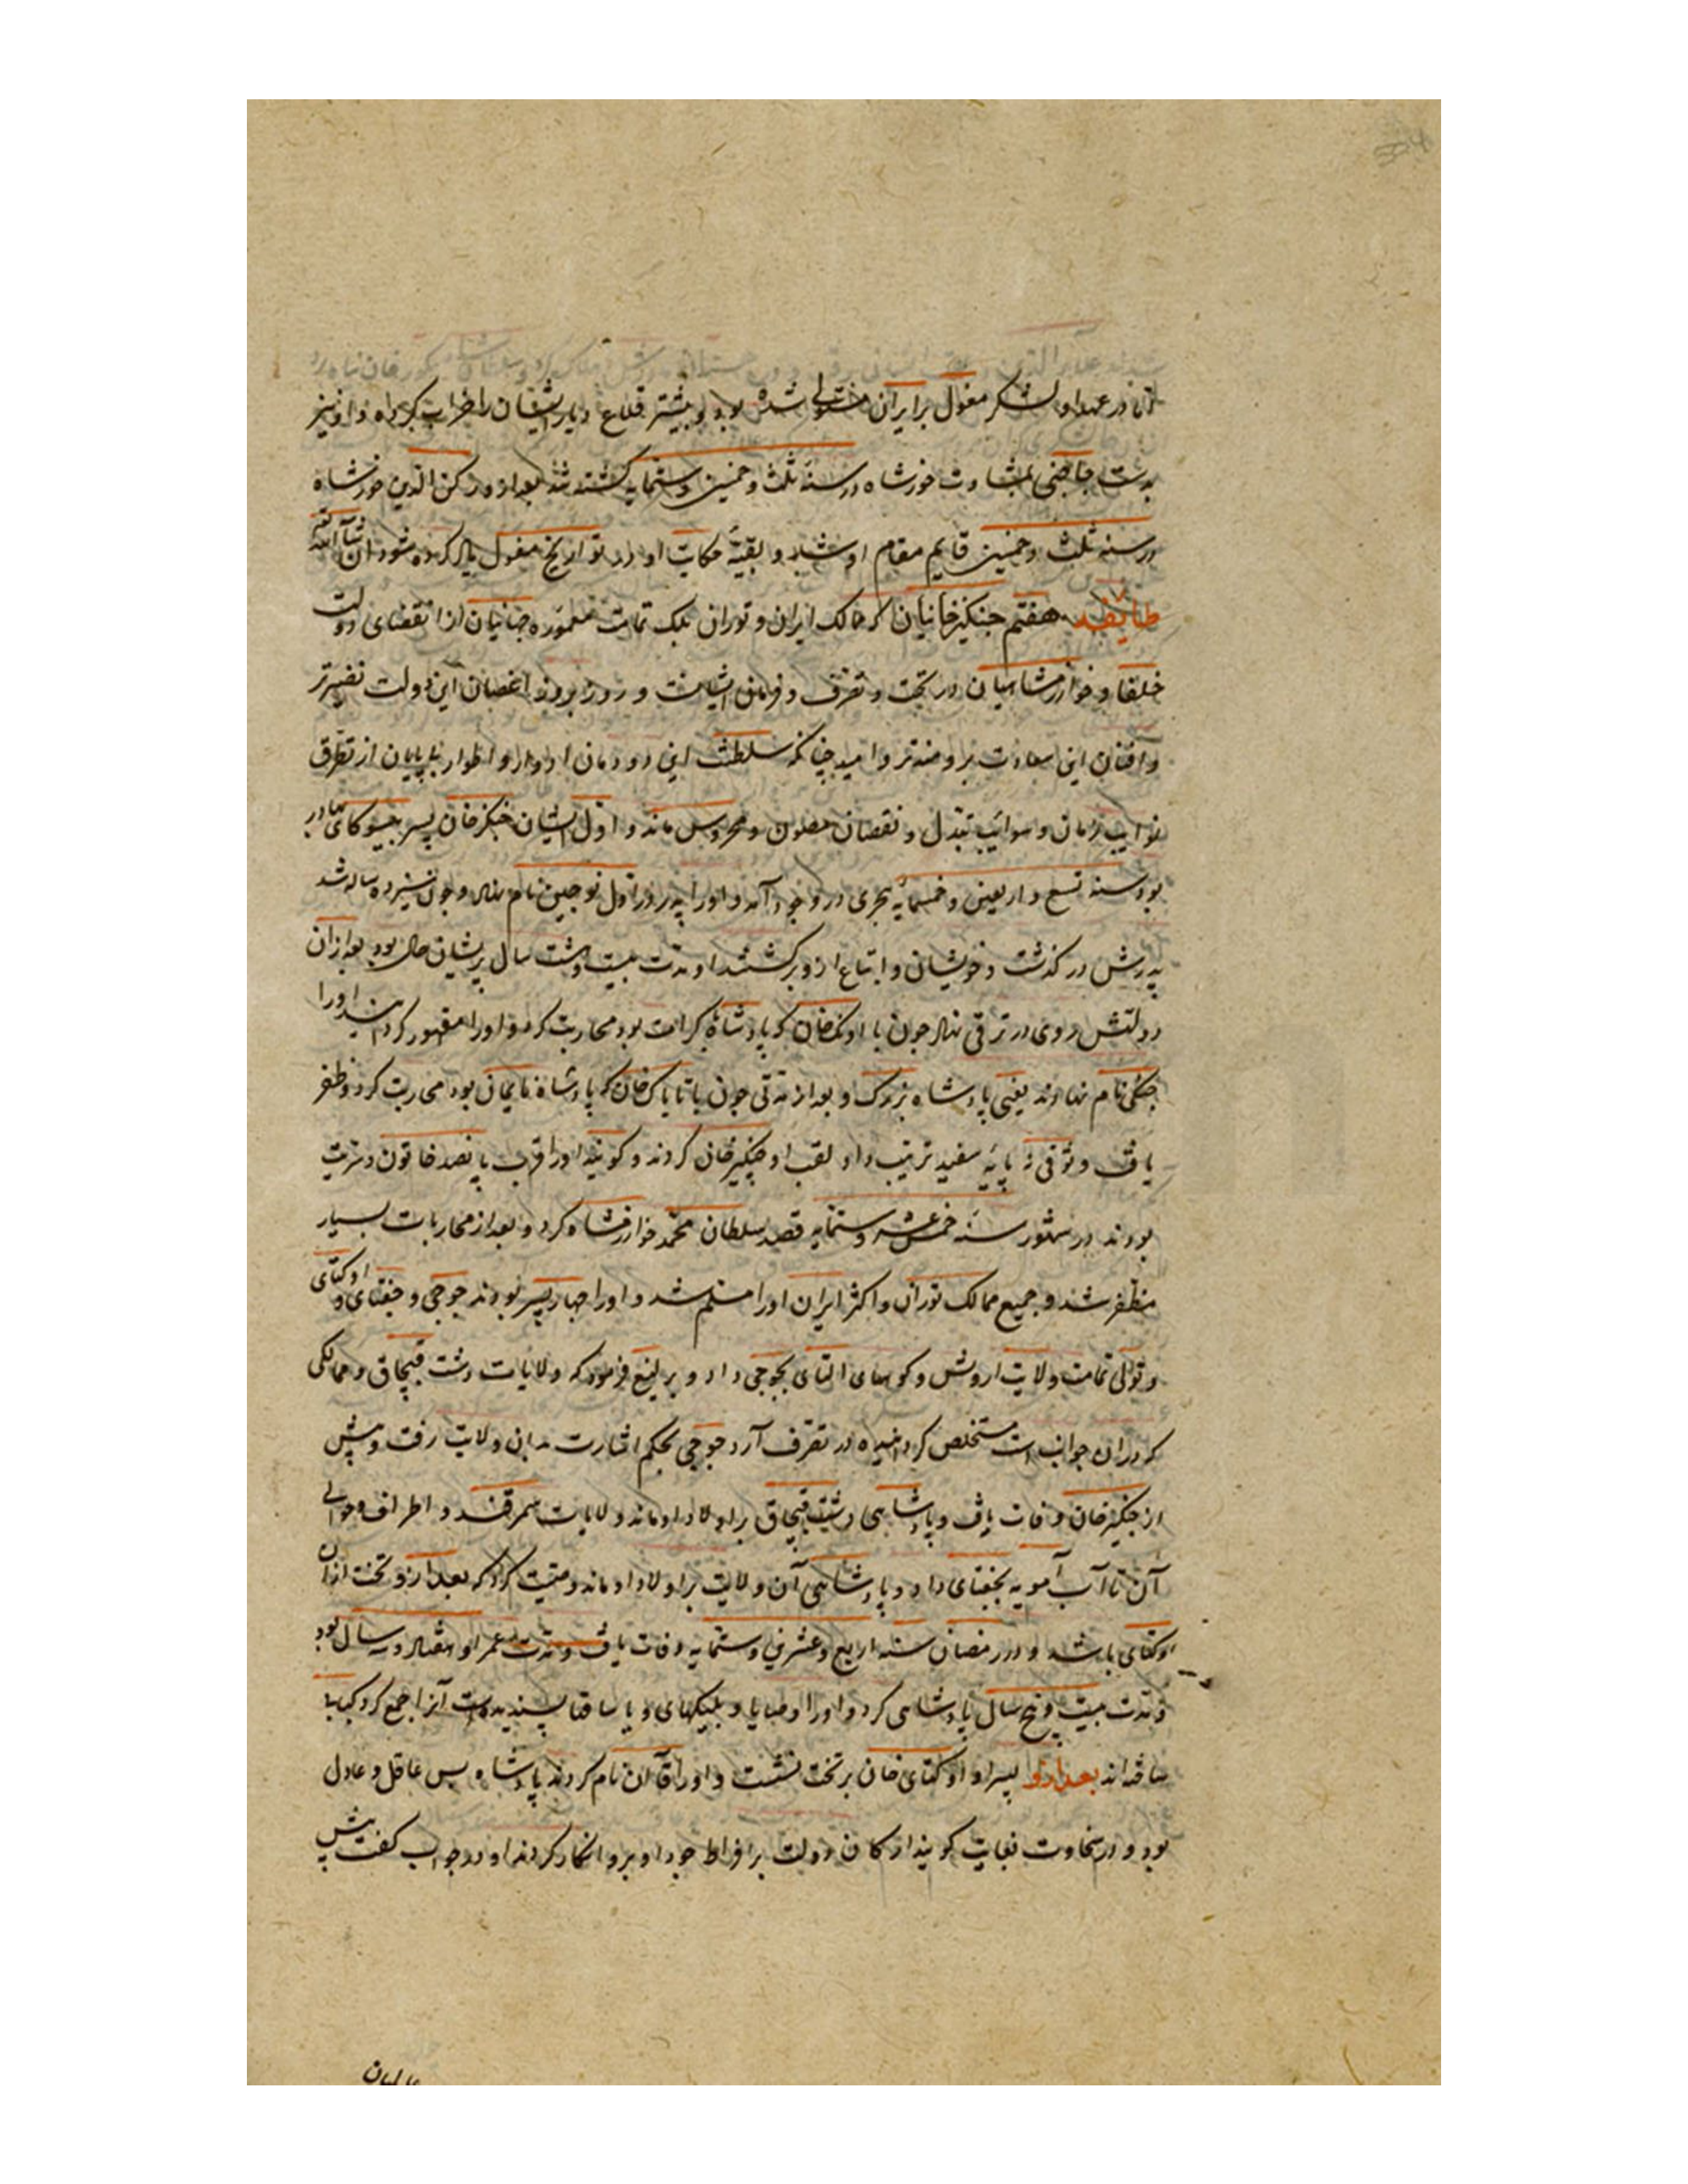 اما در عهد او لشکر مغول بر ایران مستولی شده بود و بیشتر قلاع دیار ایشان را خراب کرده و او نیز
بدست حاجبی بمشاورت خورشاه در سنهٔ ثلث و خمسین و ستمایه کشته شد بعد ازو رکن الدین خورشاه
در سنه ثلث و خمسین قایم مقام او شد و بقیهٔ حکایت او در تواریخ مغول یاد کرده شود ان شآ الله
طایفه هفتم جنکیزخانیان که ممالک ایران و توران بلک تمامت معموره جهانیان از انقضای دولت
خلفا و خوارزمشاهیان در تحت و تصرف و فرمان ایشانست و روز بروز اغصان این دولت نضیرتر
و افنان این سعادت برومندتر و امید چنانکه سلطنت این دودمان ادوار و اطوار بی پایان از تطرق
نوایب زمان و شوائب تبدل و نقصان مصون و محروس ماند و اول ایشان جنکزخان پسر ییسوکای بهادر
بود سنه تسع و اربعین و خمسمایه هجری در وجود آمد و اورا پدر روز اول توجین نام نهاد و چون سیزده ساله شد
پدرش در کذشت و خویشان و اتباع ازو برکشتند او مدت بیست و هشت سال پریشان حال بود بعد ازان
دولتش روی در ترقی نهاد چون با اونک خان که پادشاه کرایت بود محاربت کرد و اورا مقهور کردانید اورا
جنکی نام نهادند یعنی پادشاه بزرک و بعد از مدتی چون با تایانک خان که پادشاه نایمان بود محاربت کرد و ظفر
یافت و توقی نه پایهٔ سفید ترتیب داد لقب او جنکیزخان کردند و کویند اورا قرب پانصد خاتون و سریت
بودند در شهور سنه خمس عشر و ستمایه قصد سلطان محمد خوارزمشاه کرد و بعد از محاربات بسیار
مظفر شد و جمیع ممالک توران و اکثر ایران اورا مسلم شد و اورا چهار پسر بودند جوجی و جغتای و اوکتای
و تولی تمامت ولایت اردوش و کوههای التای بجوجی داد و یرلیغ فرمود که ولایات دشت قبچاق و ممالکی
که دران جوانب است مستخلص کردانیده در تصرف آرد جوجی بحکم اشارت بدان ولایت رفت و پیش
از جنکیزخان وفات یافت و پادشاهی دشت قبچاق بر اولاد او ماند ولایات سمرقند و اطراف و حوالی
آن تا آب آمویه بجغتای داد و پادشاهی آن ولایت بر اولاد او ماند وصیت کرد که بعد ازو تخت ازان
اوکتای باشد و در رمضان سنه اربع و عشرین و ستمایه وفات یافت و مدت عمر او هفتاد و سه سال بود
و مدت بیست و پنج سال پادشاهی کرد و اورا وصایا و بیلکهای و یاساقها پسندیده است آنرا جمع کرد کتابها
ساخته اند بعد ازو پسر او اوکتای خان بر تخت نشست و اورا قاآن نام کردند پادشاه بس عاقل و عادل
بود و در سخاوت بغایت کویند ارکان دولت بر افراط جود او برو انکار کردند او در جواب کفت پیش
عالمیان